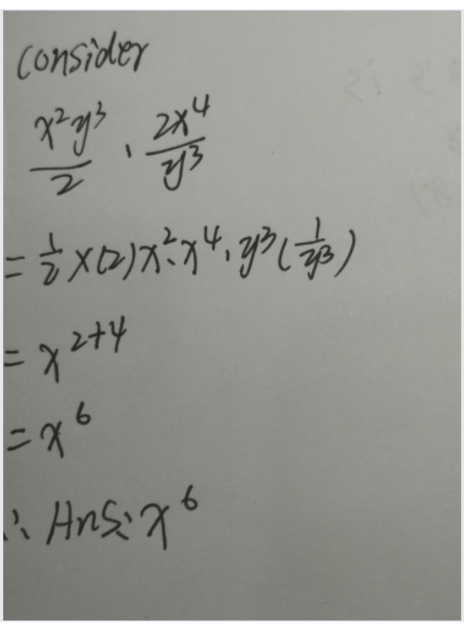 consider
x²y³/2 · 2x⁴/y³
= 1/2 × (2) x² · x⁴ · y³ (1/y³)
= x²⁺⁴
= x⁶
∴ Ans: x⁶